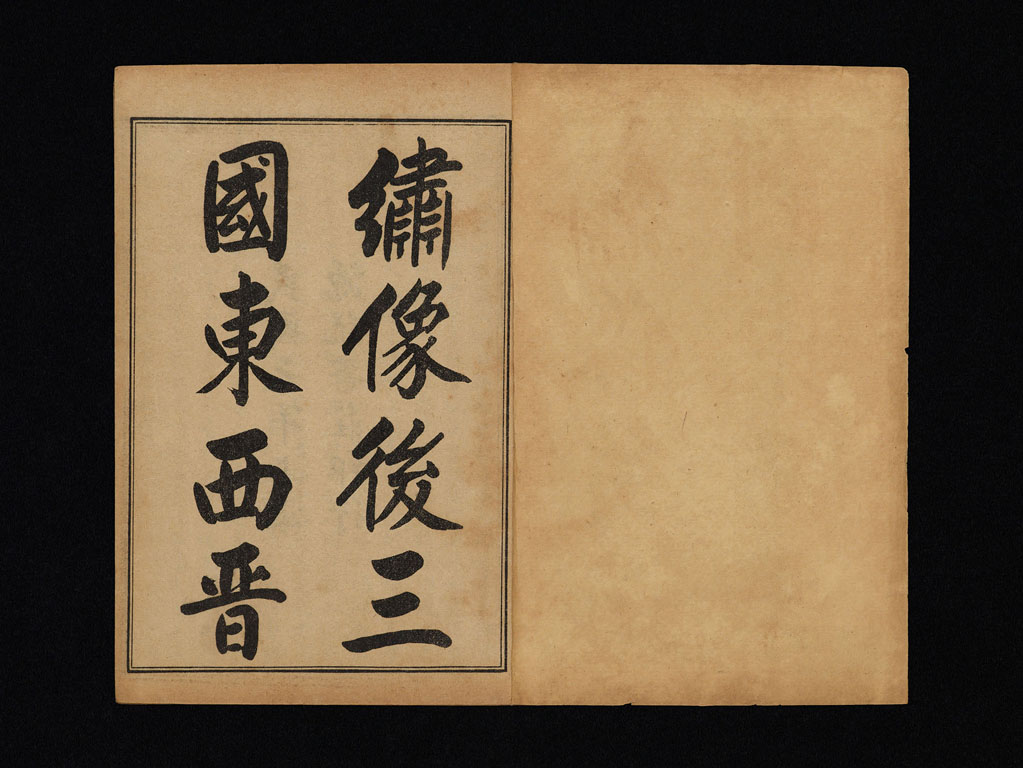 繡像後三
國東西晋